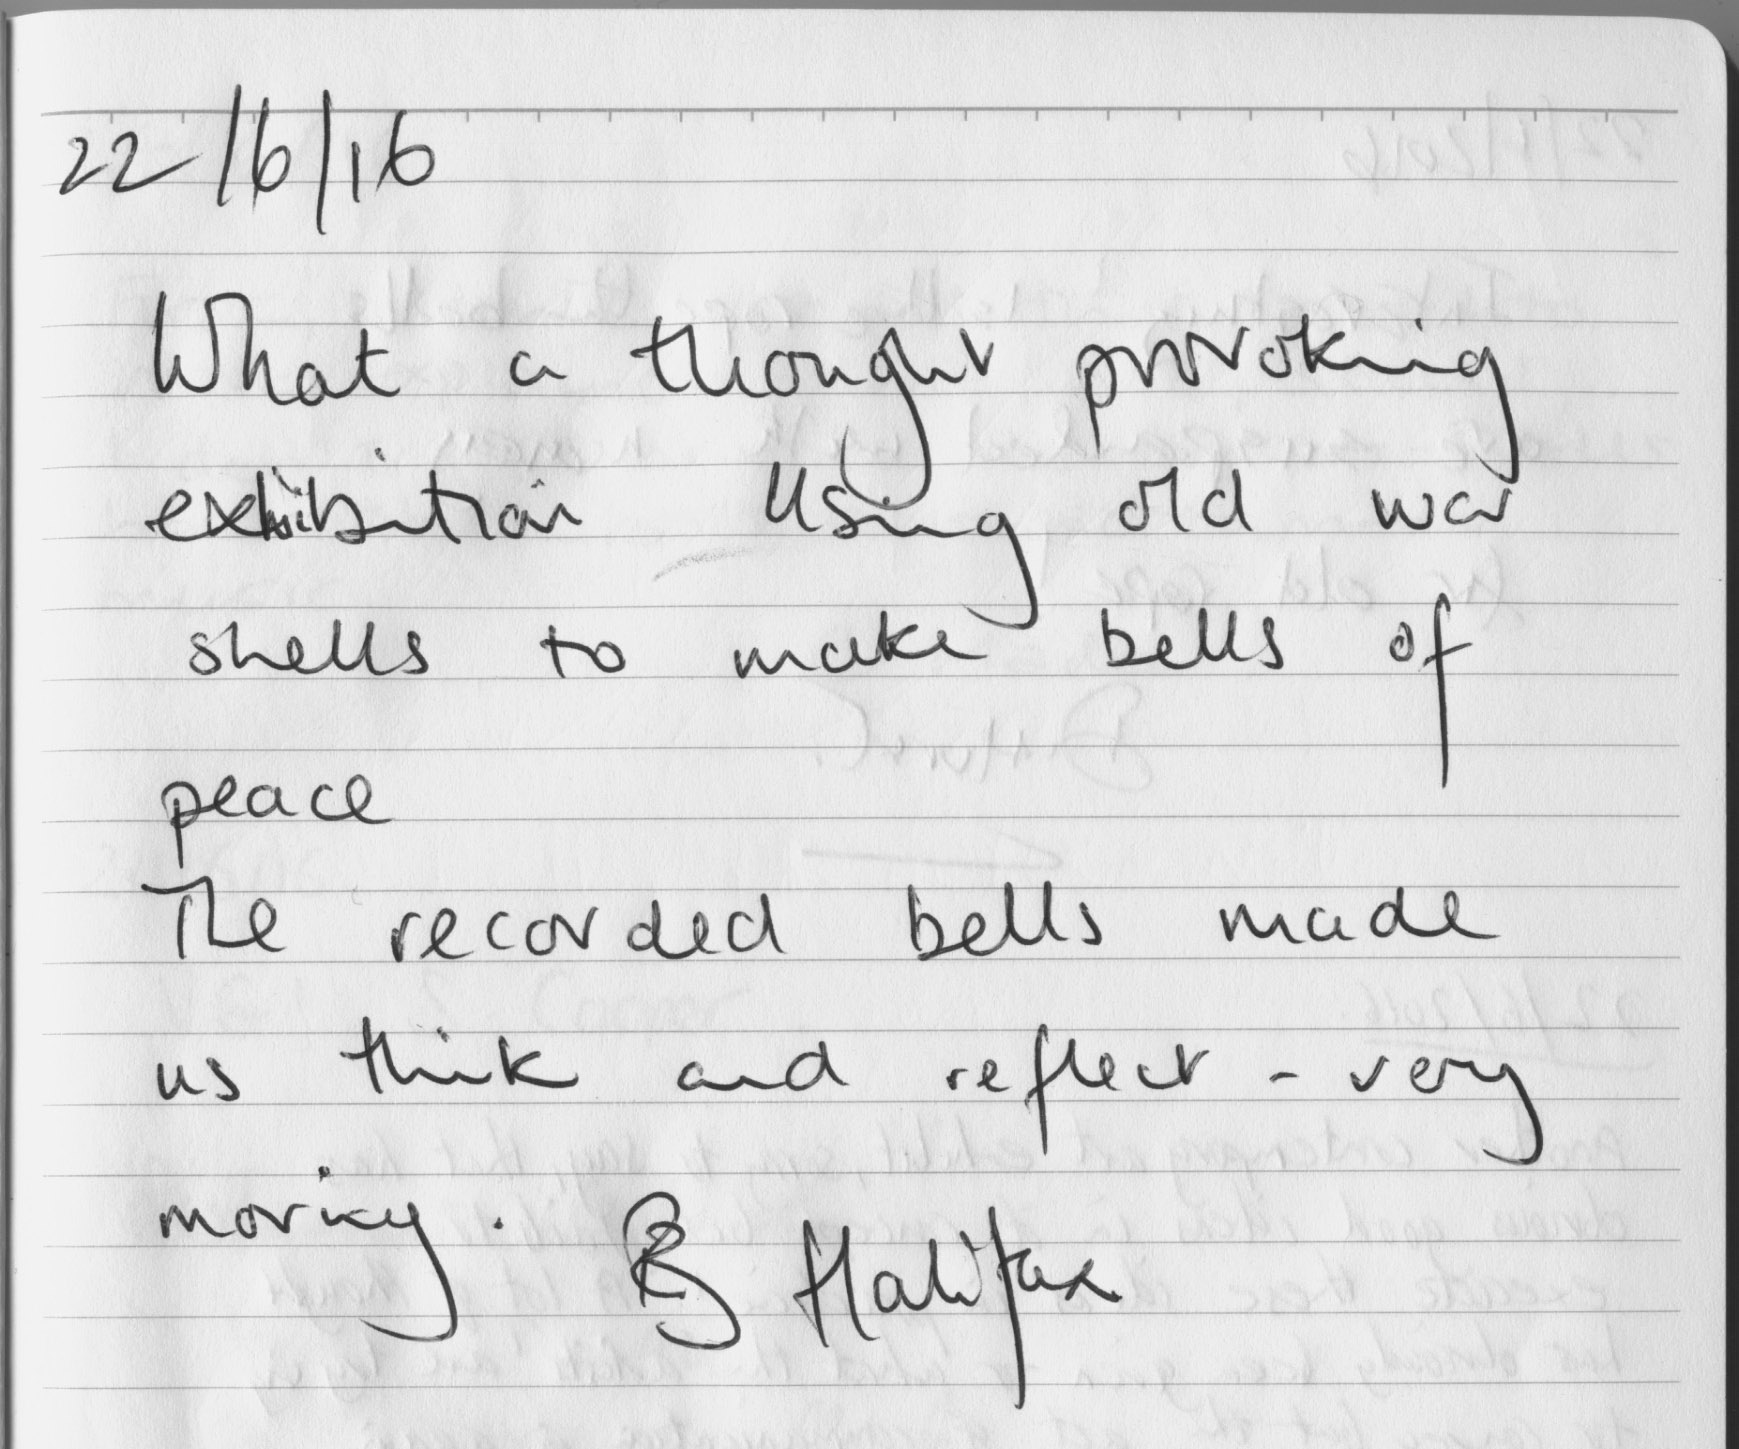 22/6/16
What a thought provoking
exhibition Using old war
shells to make bells of
peace
The recorded bells made
us think and reflect - very
moving. Halifax